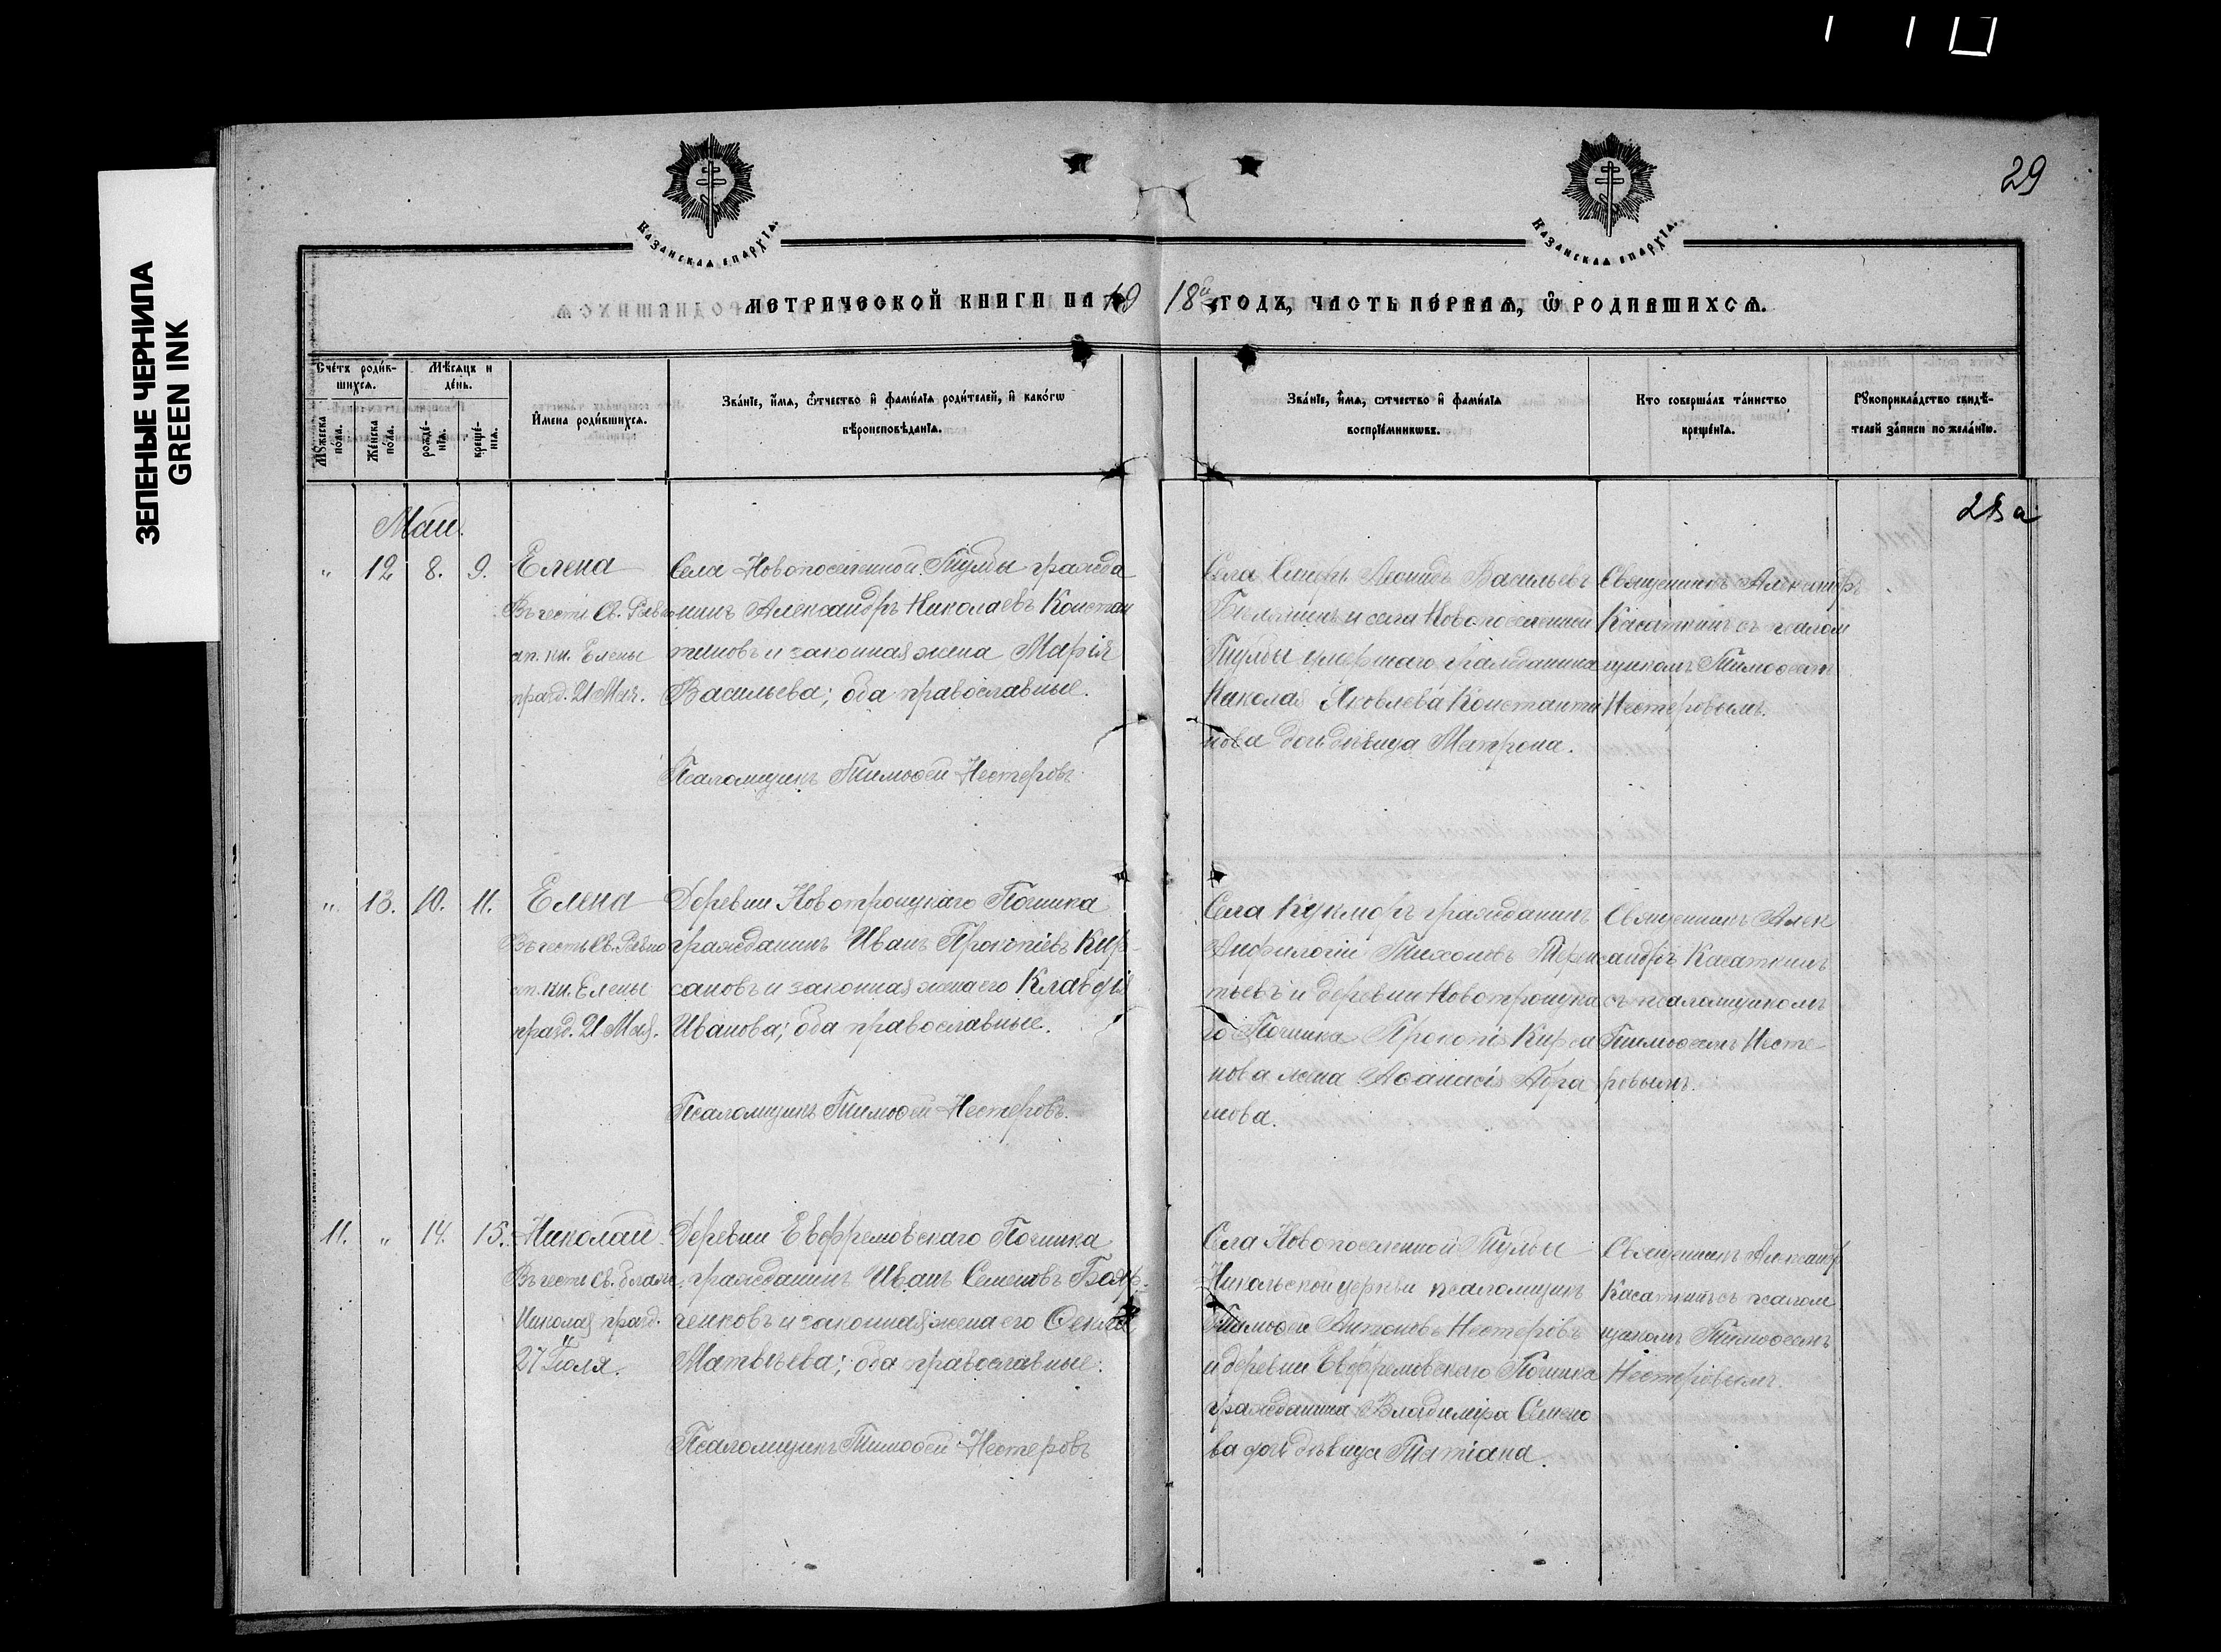 ЗЕЛЕНЫЕ ЧЕРНИЛА
GREEN INK
29
КАЗАНСКАЯ ЕПАРХІЯ.
КАЗАНСКАЯ ЕПАРХІЯ.
МЕТРИЧЕСКОЙ КНИГИ НА 19 18й ГОДЪ, ЧАСТЬ ПЕРВАЯ, Ѿ РОДИВШИХСЯ.
Сче́тъ роди́в-
шихся.
Мѣсяцъ и
де́нь.
Мꙋжеска
по́ла.
Же́нска
по́ла.
рожде́-
нїѧ.
креще́-
нїѧ.
И҆мена роди́вшихсѧ.
Зва́нїе, и҆́мѧ, ѻ҆́тчество и҆ фами́лїѧ роди́телей, и҆ како́гѡ
вѣроисповѣ́данїѧ.
Зва́нїе, и҆́мѧ, ѻ҆тчество и҆ фами́лїѧ
воспрїе́мникѡвъ.
Кто соверша́лъ та́инство
креще́нїѧ.
Рꙋкоприкла́дство свидѣ́-
телей за́писи по жела́нїю.
28а
Май.
" 12 8. 9. Елена
Въ честь Св. Равно
ап. кн. Елены
празд. 21 Мая.
Села Новопоселенной Тулбы гражда
нинъ Александръ Николаевъ Констан
тиновъ и законная жена Марія
Васильева; оба православные.
Псаломщикъ Тимоѳей Нестеровъ.
Села Леонидъ Васильевъ
и села Новопоселенной
Тулбы умершаго гражданина
Николая Яковлева Константи
нова дочь дѣвица Матрона.
Священникъ Александръ
Касаткинъ съ псалом
щикомъ Тимоѳеемъ
Нестеровымъ.
" 13. 10. 11. Елена
Въ честь Св. Равно
ап. кн. Елены
празд. 21 Мая.
Деревни Новотроицкаго Починка
гражданинъ Иванъ Прокопіевъ Кир-
сановъ и законная жена его Клавдія
Иванова; оба православные.
Псаломщикъ Тимоѳей Нестеровъ.
Села Кукморъ гражданинъ
Анфилогій Тихоновъ Терен
тьевъ и деревни Новотроицка
го Починка Прокопія Кирса
нова жена Аѳанасія Абра
мова.
Священникъ Алек
сандръ Касаткинъ
съ псаломщикомъ
Тимоѳеемъ Несте-
ровымъ.
11. " 14. 15. Николай
Въ честь Св. блаж.
Николая празд.
27 Іюля.
Деревни Евффремовскаго Починка
гражданинъ Иванъ Семеновъ Бояр-
ченковъ и законная жена его Ѳекла
Матвѣева; оба православные.
Псаломщикъ Тимоѳей Нестеровъ
Села Новопоселенной Тулбы
Никольской церкви псаломщикъ
Тимоѳей Антоновъ Нестеровъ
и деревни Евффремовскаго Починка
гражданина Владиміра Семено
ва дочь дѣвица Татіана.
Священникъ Александръ
Касаткинъ съ псалом
щикомъ Тимоѳеемъ
Нестеровымъ.